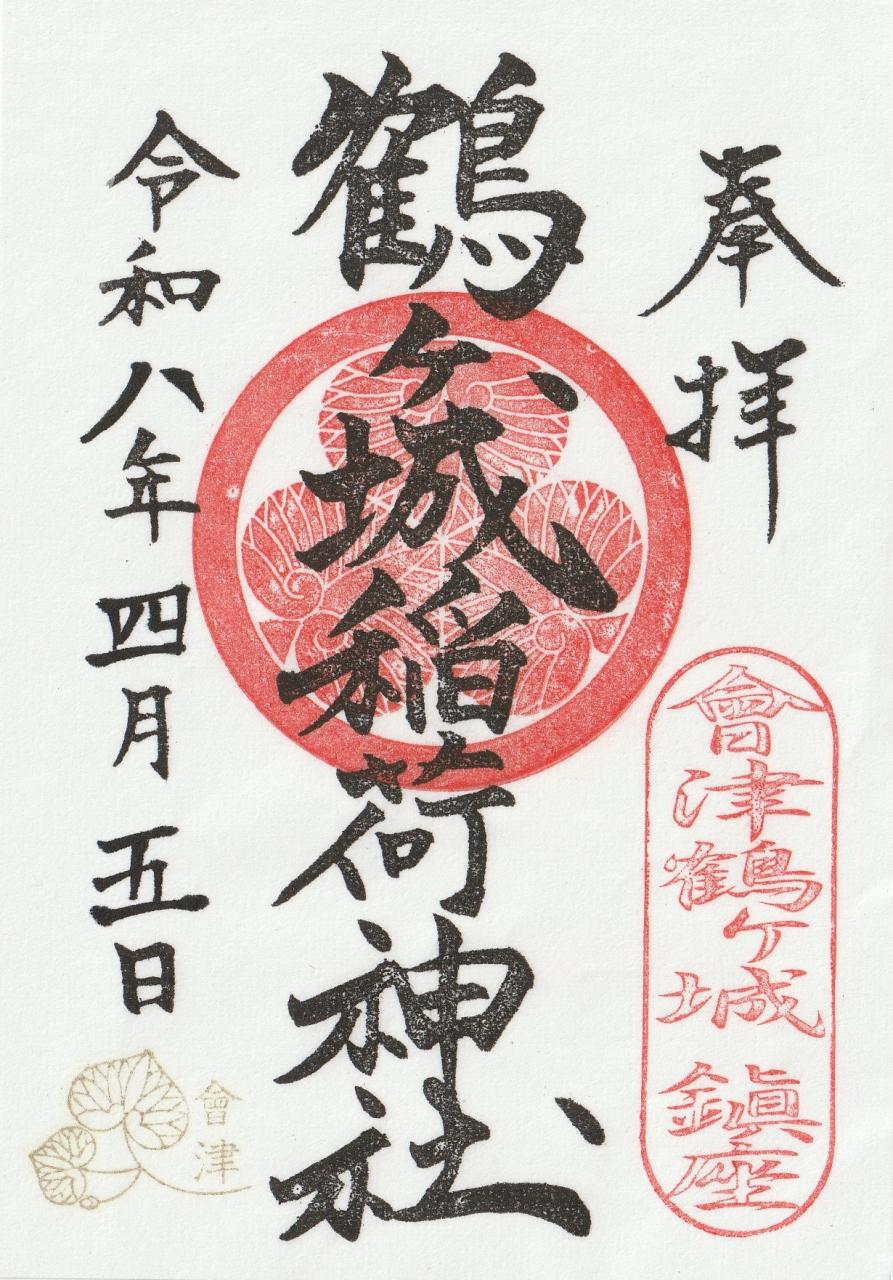 奉拝
會津鶴ヶ城鎮座
鶴ヶ城稲荷神社
令和八年四月五日
會津